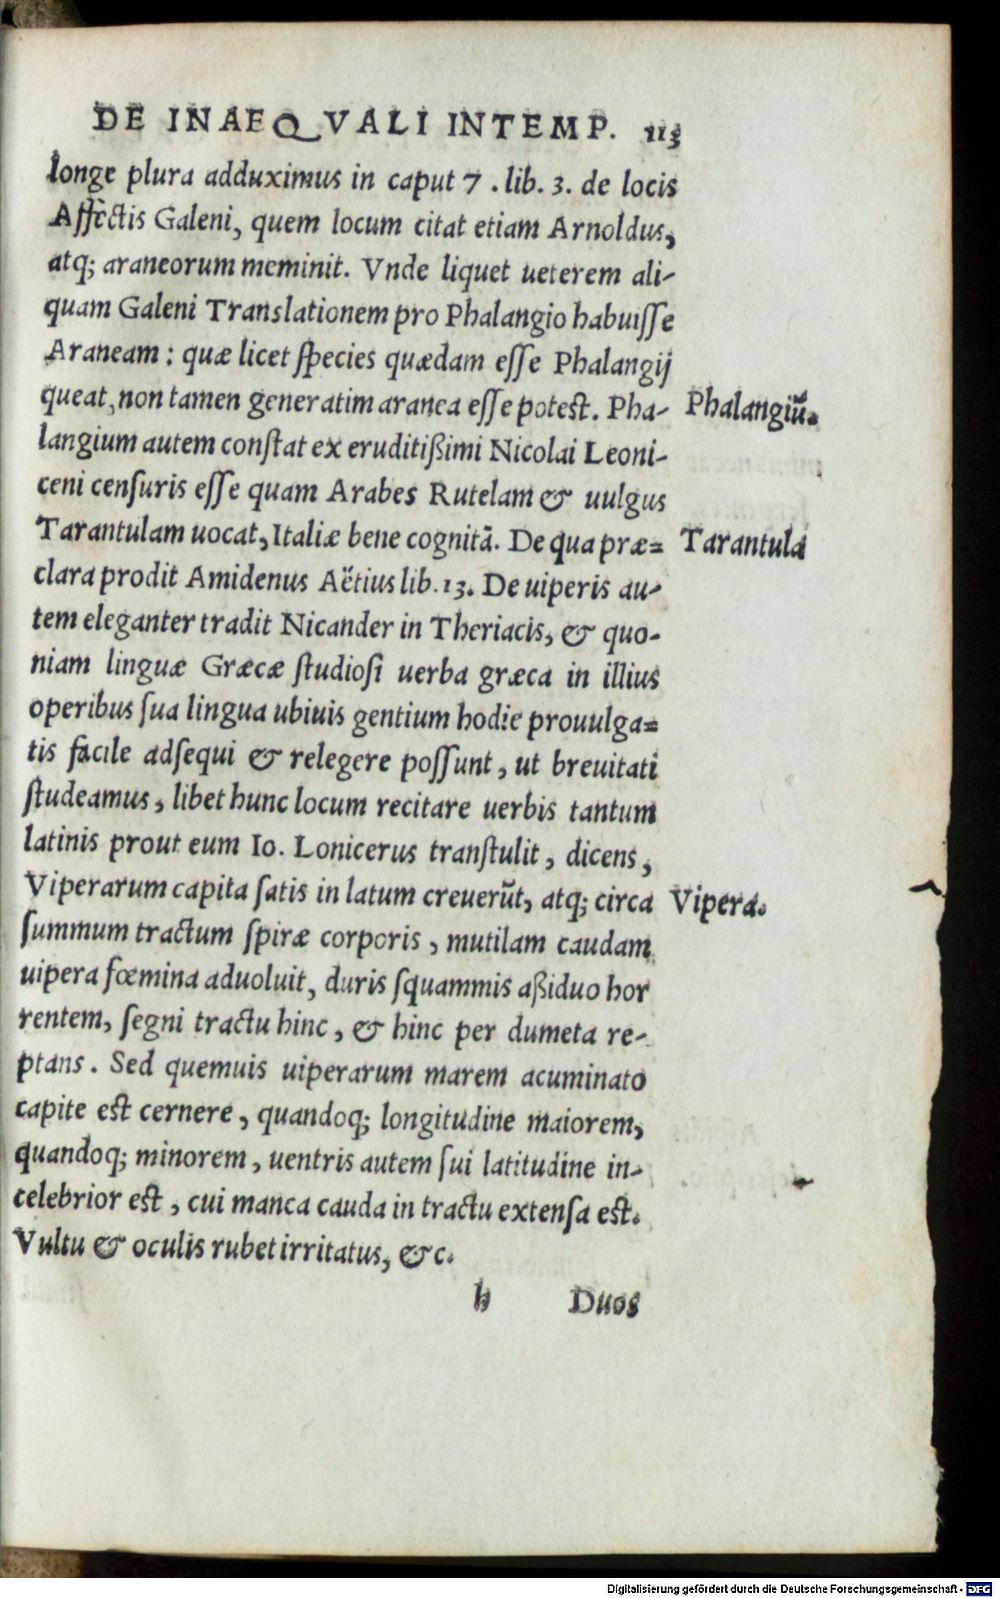 DE INAEQVALI INTEMP. 113
longe plura adduximus in caput 7 . lib. 3. de locis
Affectis Galeni, quem locum citat etiam Arnoldus,
atq; araneorum meminit. Vnde liquet ueterem ali-
quam Galeni Translationem pro Phalangio habuiſſe
Araneam : quæ licet ſpecies quædam eſſe Phalangij
queat, non tamen generatim aranea eſſe poteſt. Pha- Phalangiū.
langium autem conſtat ex eruditißimi Nicolai Leoni-
ceni cenſuris eſſe quam Arabes Rutelam & uulgus
Tarantulam uocat, Italiæ bene cognitā. De qua præ= Tarantula
clara prodit Amidenus Aëtius lib. 13. De uiperis au-
tem eleganter tradit Nicander in Theriacis, & quo-
niam linguæ Græcæ ſtudioſi uerba græca in illius
operibus ſua lingua ubiuis gentium hodie prouulga=
tis facile adſequi & relegere poſſunt, ut breuitati
ſtudeamus, libet hunc locum recitare uerbis tantum
latinis prout eum Io. Lonicerus tranſtulit, dicens,
Viperarum capita ſatis in latum creuerūt, atq; circa Vipera.
ſummum tractum ſpiræ corporis, mutilam caudam
uipera fœmina aduoluit, duris ſquammis aßiduo hor
rentem, ſegni tractu hinc, & hinc per dumeta re-
ptans. Sed quemuis uiperarum marem acuminato
capite eſt cernere, quandoq; longitudine maiorem,
quandoq; minorem, uentris autem ſui latitudine in-
celebrior eſt, cui manca cauda in tractu extenſa eſt.
Vultu & oculis rubet irritatus, &c.
h Duos
Digitalisierung gefördert durch die Deutsche Forschungsgemeinschaft - DFG